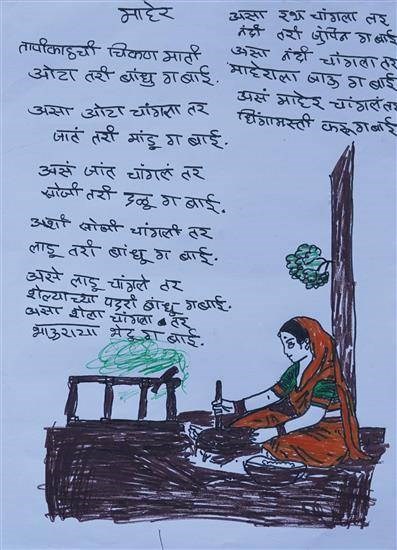 माहेर
तापीकाठची चिकण माती
ओटा तरी बांधु ग बाई.
असा ओटा चांगला तर
जातं तरी मांडू ग बाई.
असं जातं चांगलं तर
सोजी तरी दळू ग बाई.
अशी सोजी चांगली तर
लाडू तरी बांधू ग बाई.
असे लाडू चांगले तर
शेल्याच्या पदरी बांधू ग बाई.
असा शेला चांगला तर
भाऊराया भेटू ग बाई.
असा रथ चांगला तर
नंदी तरी जुंपिन ग बाई
असा नंदी चांगला तर
माहेराला जाऊ ग बाई
असं माहेर चांगलं तर
धिंगामस्ती करू ग बाई